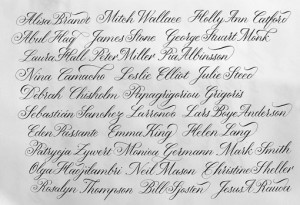 Alisa Brandt Mitch Wallace Holly Ann
Abdul Haq James Stone George Stuart Monk
Laura Hall Peter Miller Pia Albinsson
Nina Camacho Leslie Elliot Julie
Debrah Chisholm Papagrigoriou Grigoris
Sebastian Sanchez Larronco Lars Boye Anderson
Eden Emma King Helen Lang
Patrycja Zywert Monica Germann Mark Smith
Olga Neil Mason Christine
Rosalyn Thompson Bill Sjosten Jesus A